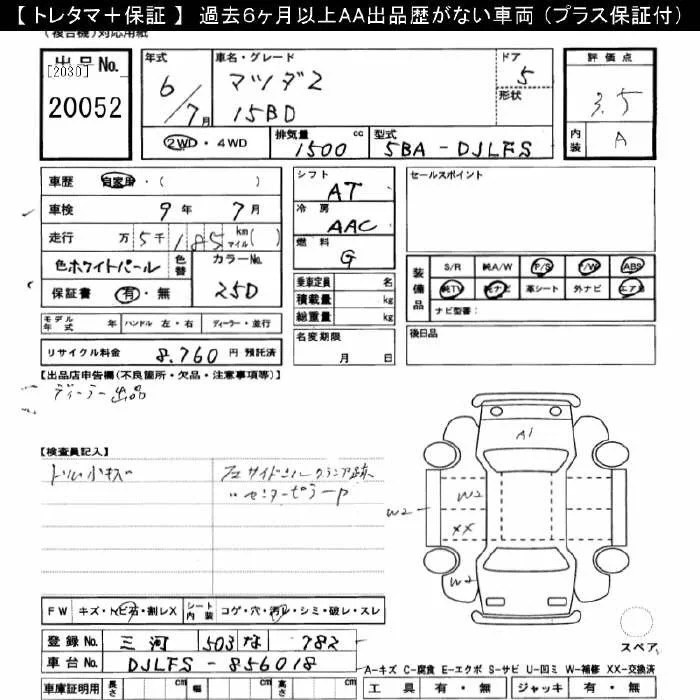 【 トレタマ＋保証 】 過去6ヶ月以上AA出品歴がない車両 (プラス保証付)
(複合機)対応用紙
出品No.
[2030]
20052
年式
6/7月
車名・グレード
マツダ2
15BD
ドア
5
形状
②WD・4WD
排気量
1500 cc
型式
5BA-DJLFS
評価点
3.5
内装
A
車歴 自家用・( )
車検 9年 7月
走行 万 5千 185 km マイル( )
色 ホワイトパール 色替
カラーNo.
25D
保証書 有・無
モデル年式 年 ハンドル 左・右 ディーラー・並行
リサイクル料金 8,760 円 預託済
シフト
AT
冷房
AAC
燃料
G
乗車定員 名
積載量 kg
総重量 kg
名変期限
月 日
セールスポイント
装備品
S/R 純A/W P/S P/W ABS
純TV 純ナビ 革シート 外ナビ エアB
ナビ型番:
後日品
【出品店申告欄(不良箇所・欠品・注意事項等)】
ディーラー出品
【検査員記入】
トリム小キズ
センターピラーP
A1
W2
W2
XX
W2
W2
FW キズ・トビ石・割レX シート内装 コゲ・穴・汚レ・シミ・破レ・スレ
登録No. 三河 503 な 782
車台No. DJLFS-856018
車庫証明用 長さ cm 幅 cm 高さ cm
スペア
A-キズ C-腐食 E-エクボ S-サビ U-凹ミ W-補修 XX-交換済
工具 有・無 ジャッキ 有・無